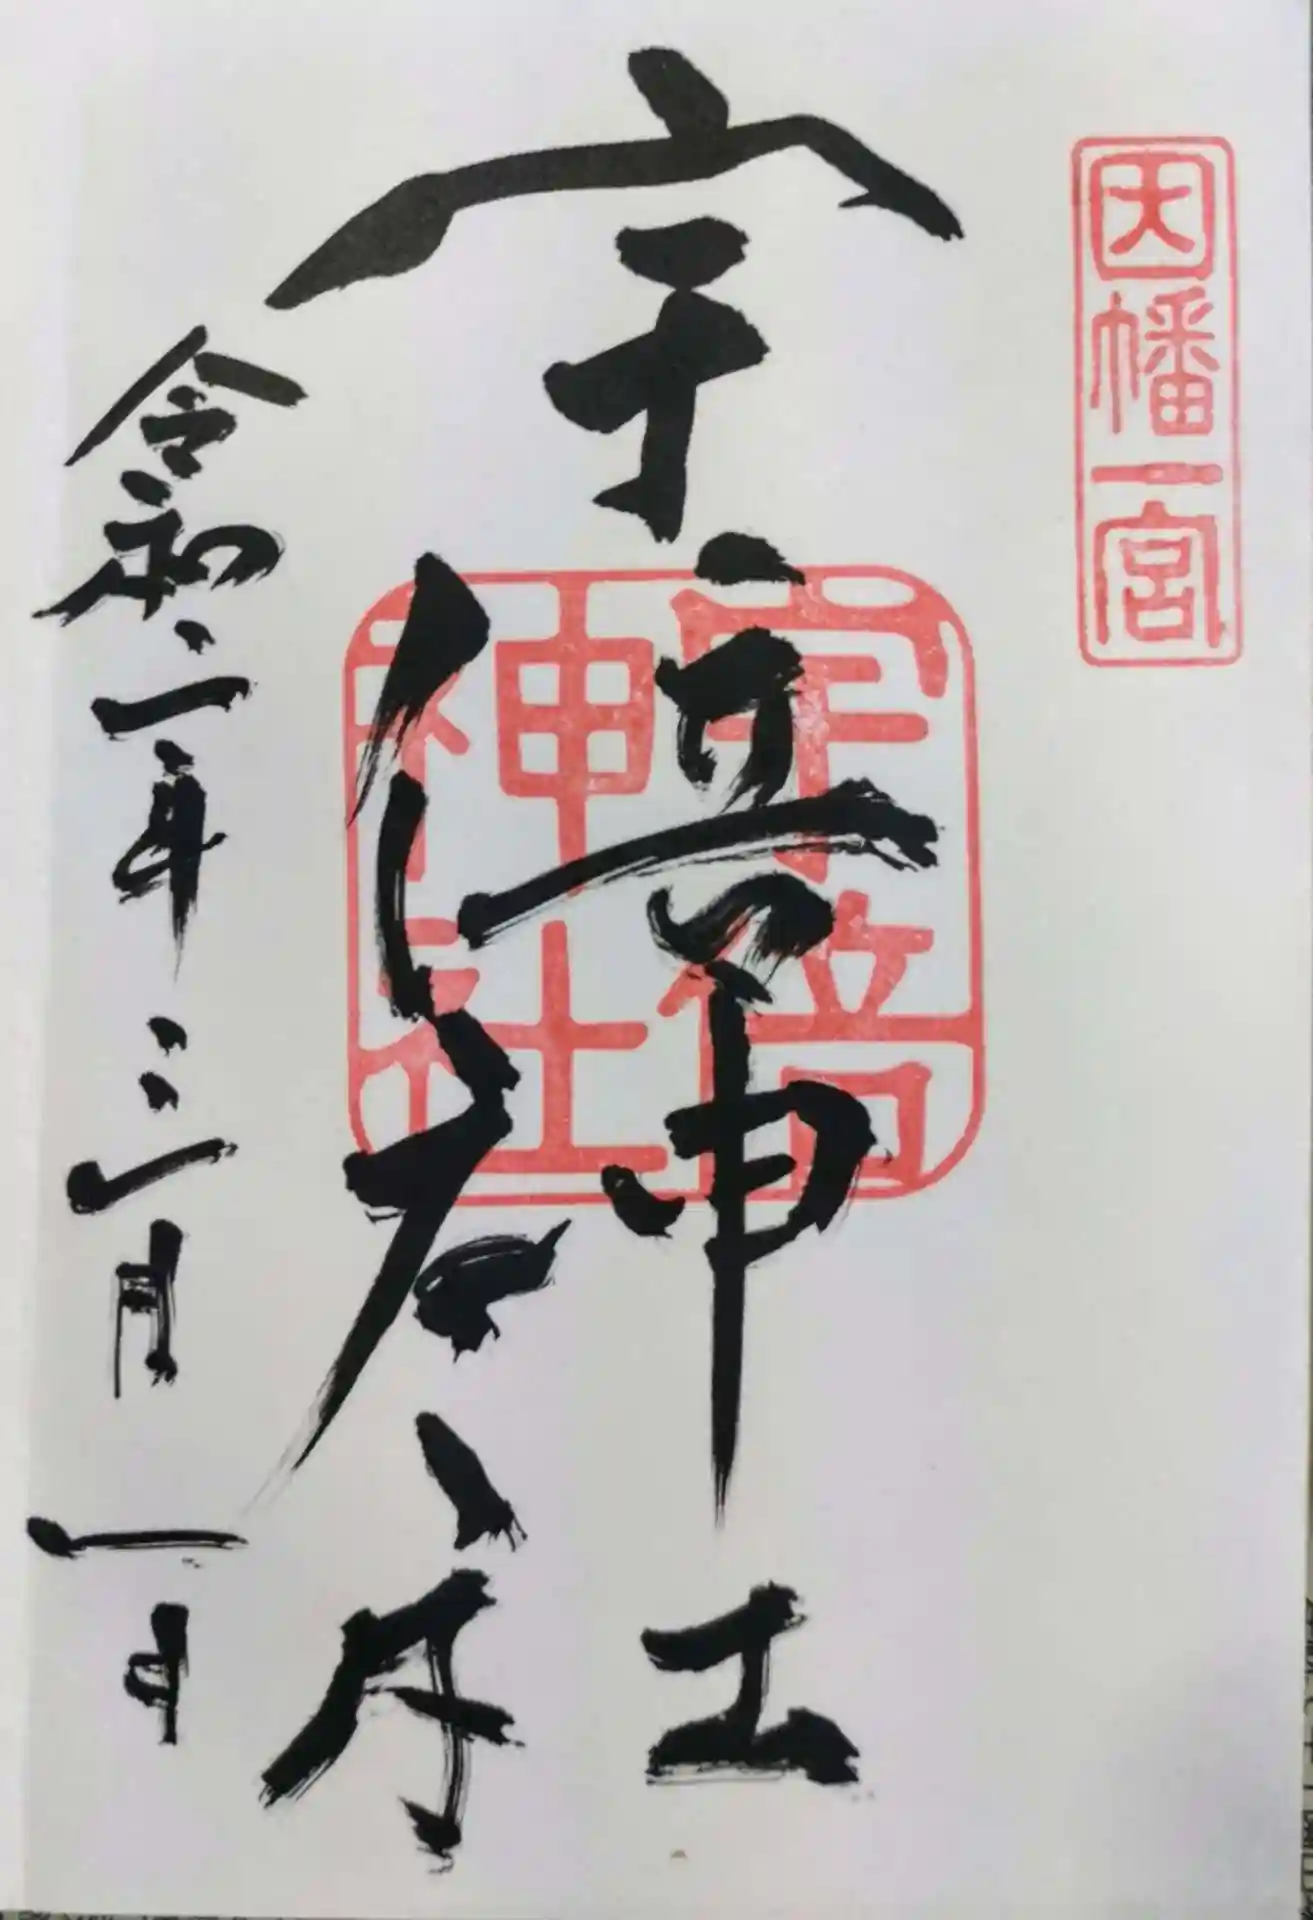 因幡一宮
宇倍神社
宇倍神社
令和二年三月一日